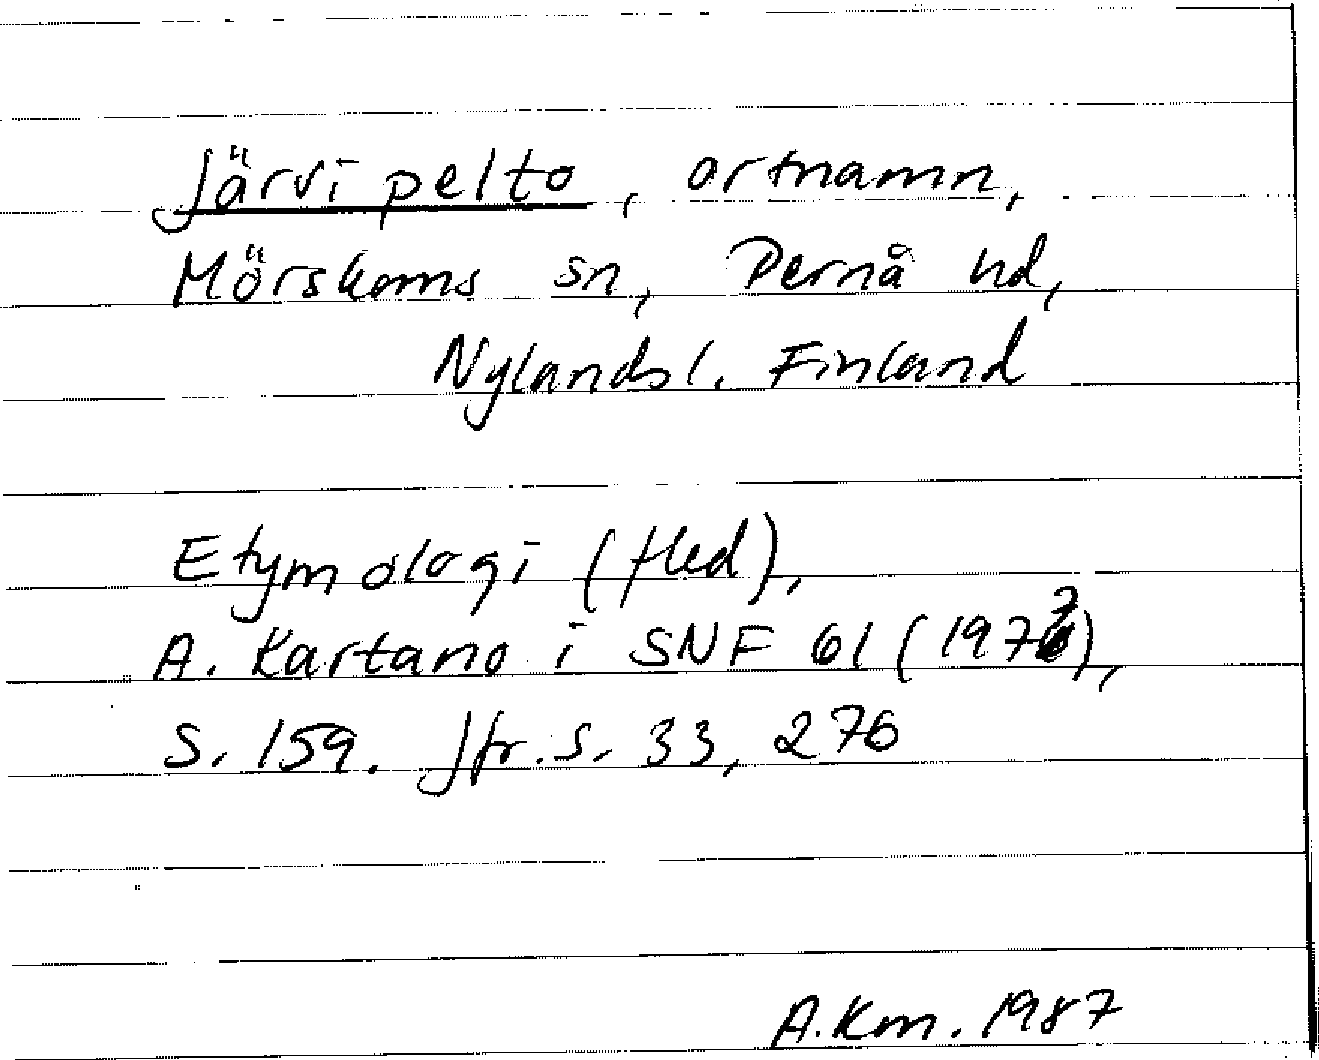 Järvipelto, ortnamn,
Mörskoms sn, Pernå hd,
Nylandsl. Finland
Etymologi (fled),
A. Kartano i SNF 61 (1973),
S. 159. Jfr. S. 33, 276
A.Km. 1987